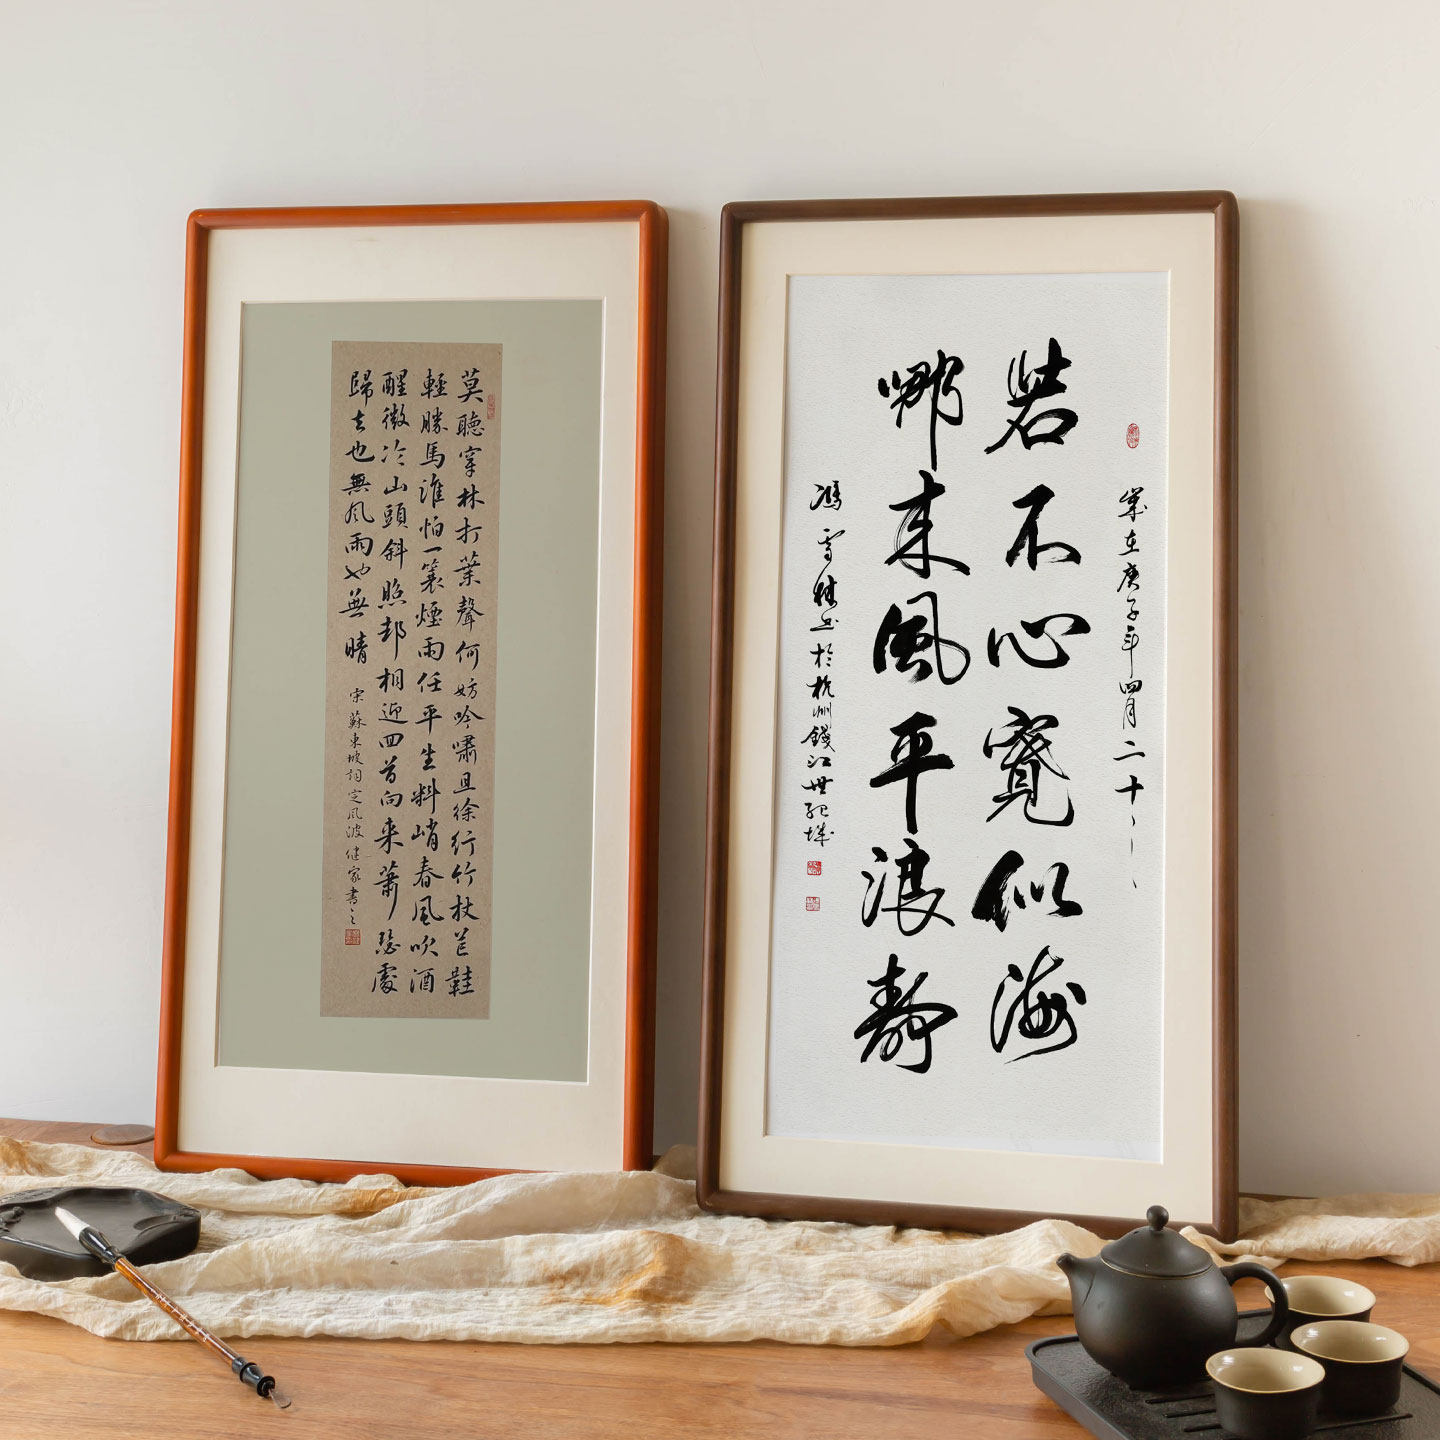 莫聽穿林打葉聲何妨吟嘯且徐行竹杖芒鞋
輕勝馬誰怕一蓑煙雨任平生料峭春風吹酒
醒微冷山頭斜照却相迎回首向来蕭瑟處
歸去也無風雨也無晴
宋蘇東坡詞定風波健家書之
歲在庚子年四月二十
若不心寬似海
哪来風平浪靜
馮雪林書於杭州錢江世紀城